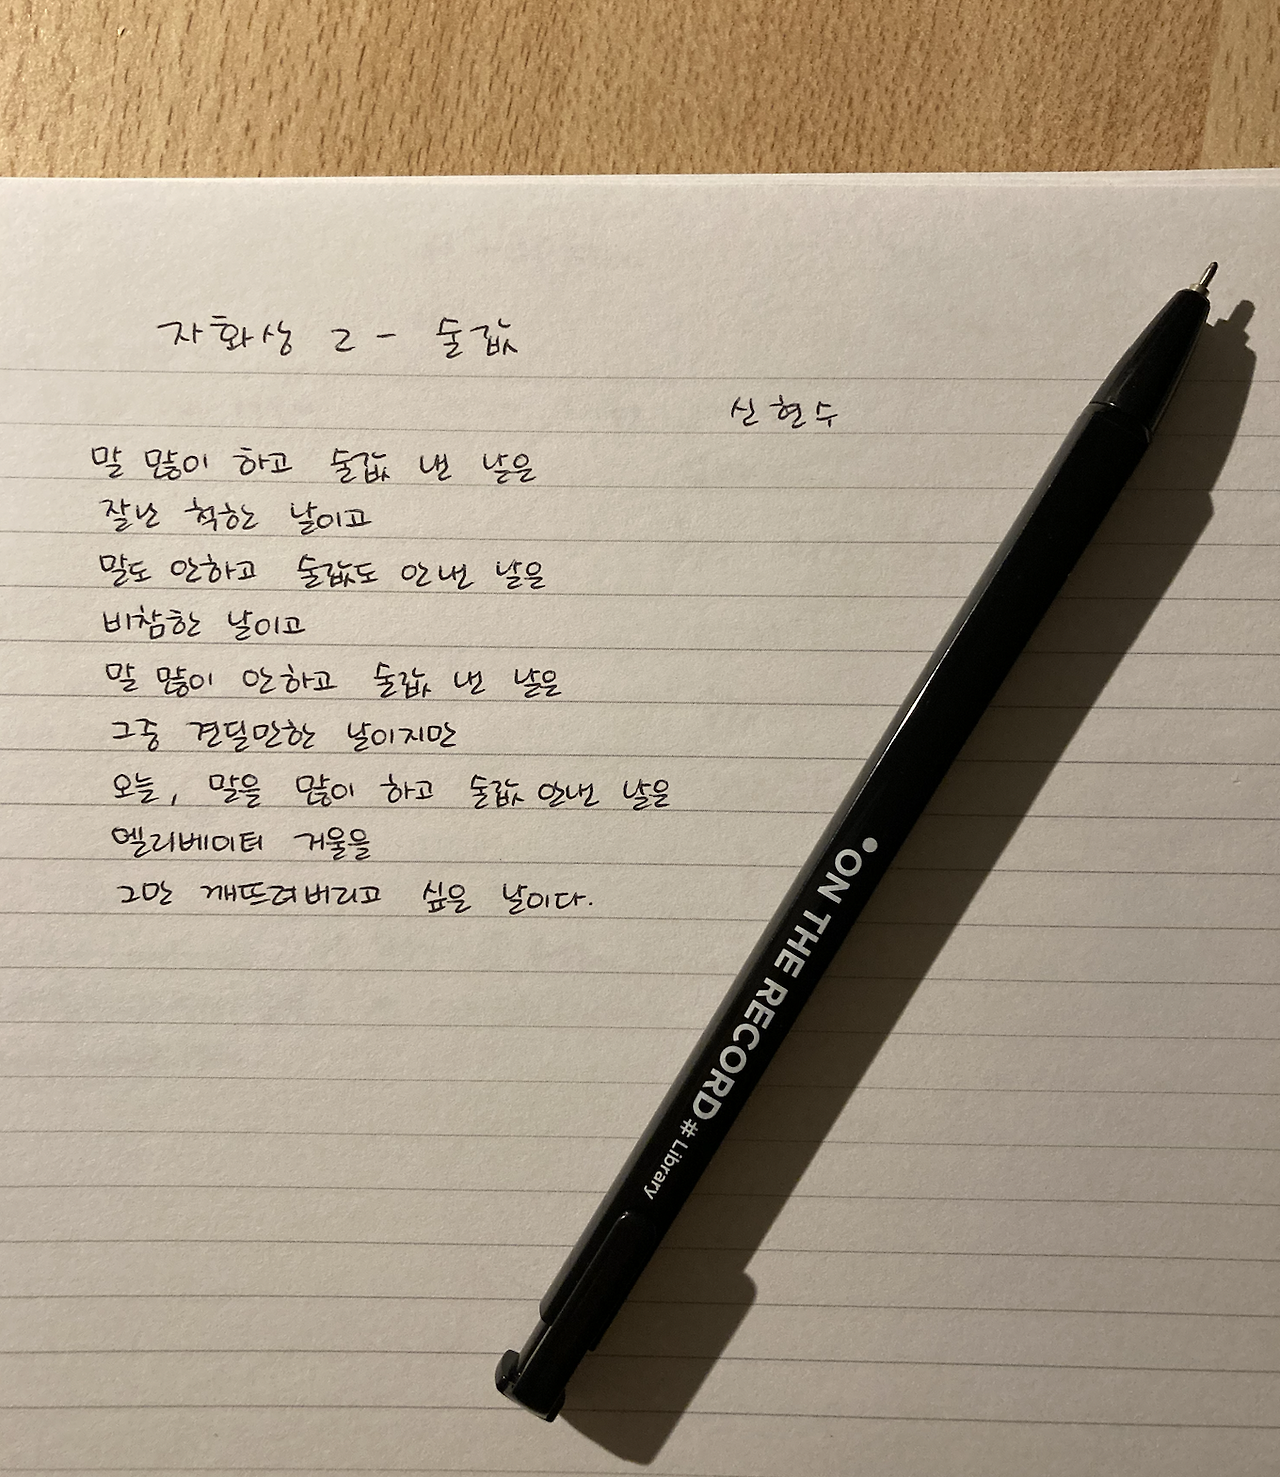 자화상 2 - 술값
신현수
말 많이 하고 술값 낸 날은
잘난 척한 날이고
말도 안하고 술값도 안낸 날은
비참한 날이고
말 많이 안하고 술값 낸 날은
그중 견딜만한 날이지만
오늘, 말을 많이 하고 술값 안낸 날은
엘리베이터 거울을
그만 깨뜨려버리고 싶은 날이다.
ON THE RECORD # Library